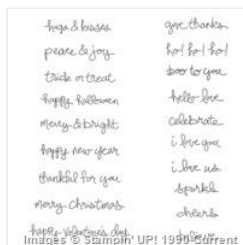 hugs & kisses
peace & joy
trick or treat
happy halloween
merry & bright
happy new year
thankful for you
merry Christmas
happy valentine's day
give thanks
ho! ho! ho!
boo to you
hello love
celebrate
i love you
i love us
sparkle
cheers
Images © Stampin' UP! 1990-Current